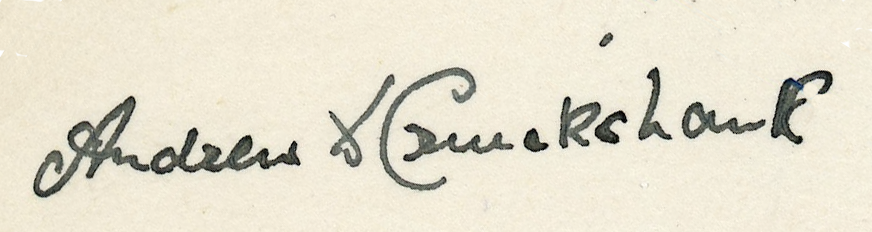 Andrew Cruickshank